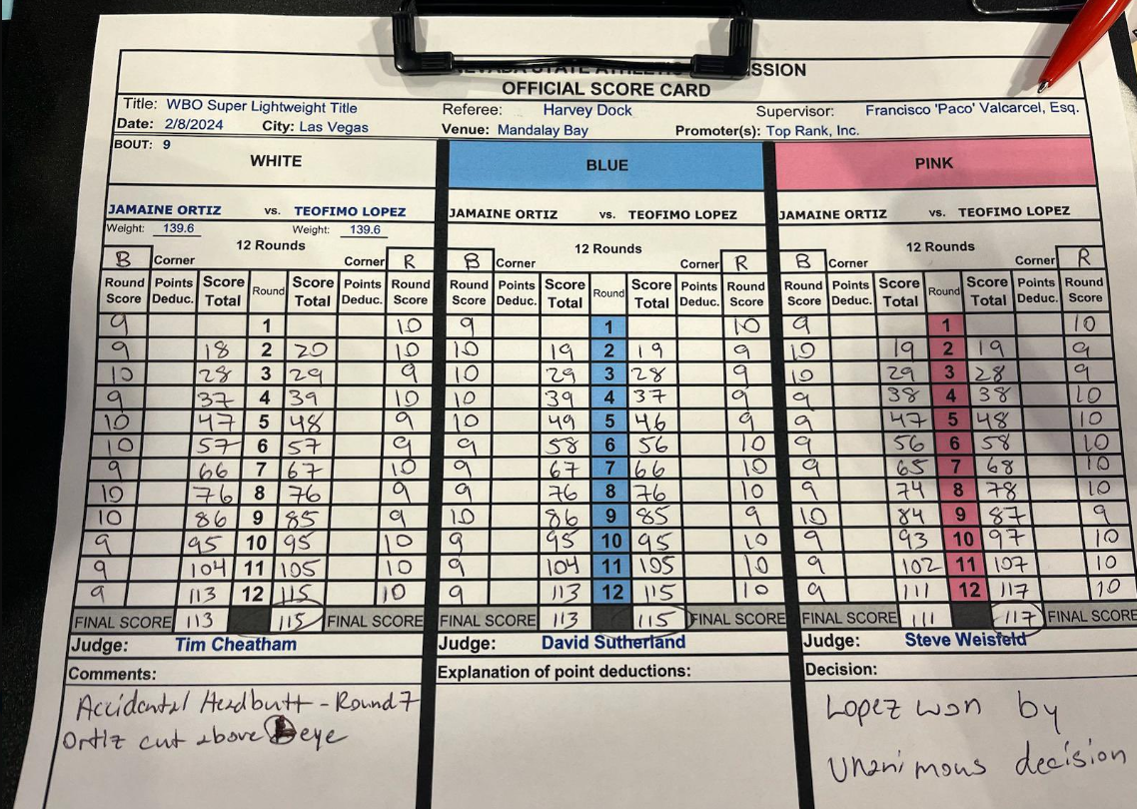 SSION
OFFICIAL SCORE CARD
Title: WBO Super Lightweight Title Referee: Harvey Dock Supervisor: Francisco 'Paco' Valcarcel, Esq.
Date: 2/8/2024 City: Las Vegas Venue: Mandalay Bay Promoter(s): Top Rank, Inc.
BOUT: 9
WHITE BLUE PINK
JAMAINE ORTIZ vs. TEOFIMO LOPEZ JAMAINE ORTIZ vs. TEOFIMO LOPEZ JAMAINE ORTIZ vs. TEOFIMO LOPEZ
Weight: 139.6 Weight: 139.6
12 Rounds 12 Rounds 12 Rounds
B Corner Corner R B Corner Corner R B Corner Corner R
Round Points Score Round Score Points Round Round Points Score Round Score Points Round Round Points Score Round Score Points Round
Score Deduc. Total Total Deduc. Score Score Deduc. Total Total Deduc. Score Score Deduc. Total Total Deduc. Score
9 1 10 9 1 10 9 1 10
9 18 2 20 10 10 19 2 19 9 10 19 2 19 9
10 28 3 29 9 10 29 3 28 9 10 29 3 28 9
9 37 4 39 10 10 39 4 37 9 9 38 4 38 10
10 47 5 48 9 10 49 5 46 9 9 47 5 48 10
10 57 6 57 9 9 58 6 56 10 9 56 6 58 10
9 66 7 67 10 9 67 7 66 10 9 65 7 68 10
10 76 8 76 9 9 76 8 76 10 9 74 8 78 10
10 86 9 85 9 10 86 9 85 9 10 84 9 87 9
9 95 10 95 10 9 95 10 95 10 9 93 10 97 10
9 104 11 105 10 9 104 11 105 10 9 102 11 107 10
9 113 12 115 10 9 113 12 115 10 9 111 12 117 10
FINAL SCORE 113 115 FINAL SCORE FINAL SCORE 113 115 FINAL SCORE FINAL SCORE 111 117 FINAL SCORE
Judge: Tim Cheatham Judge: David Sutherland Judge: Steve Weisfeld
Comments: Explanation of point deductions: Decision:
Accidental Headbutt - Round 7
Ortiz cut above eye
Lopez won by
Unanimous decision